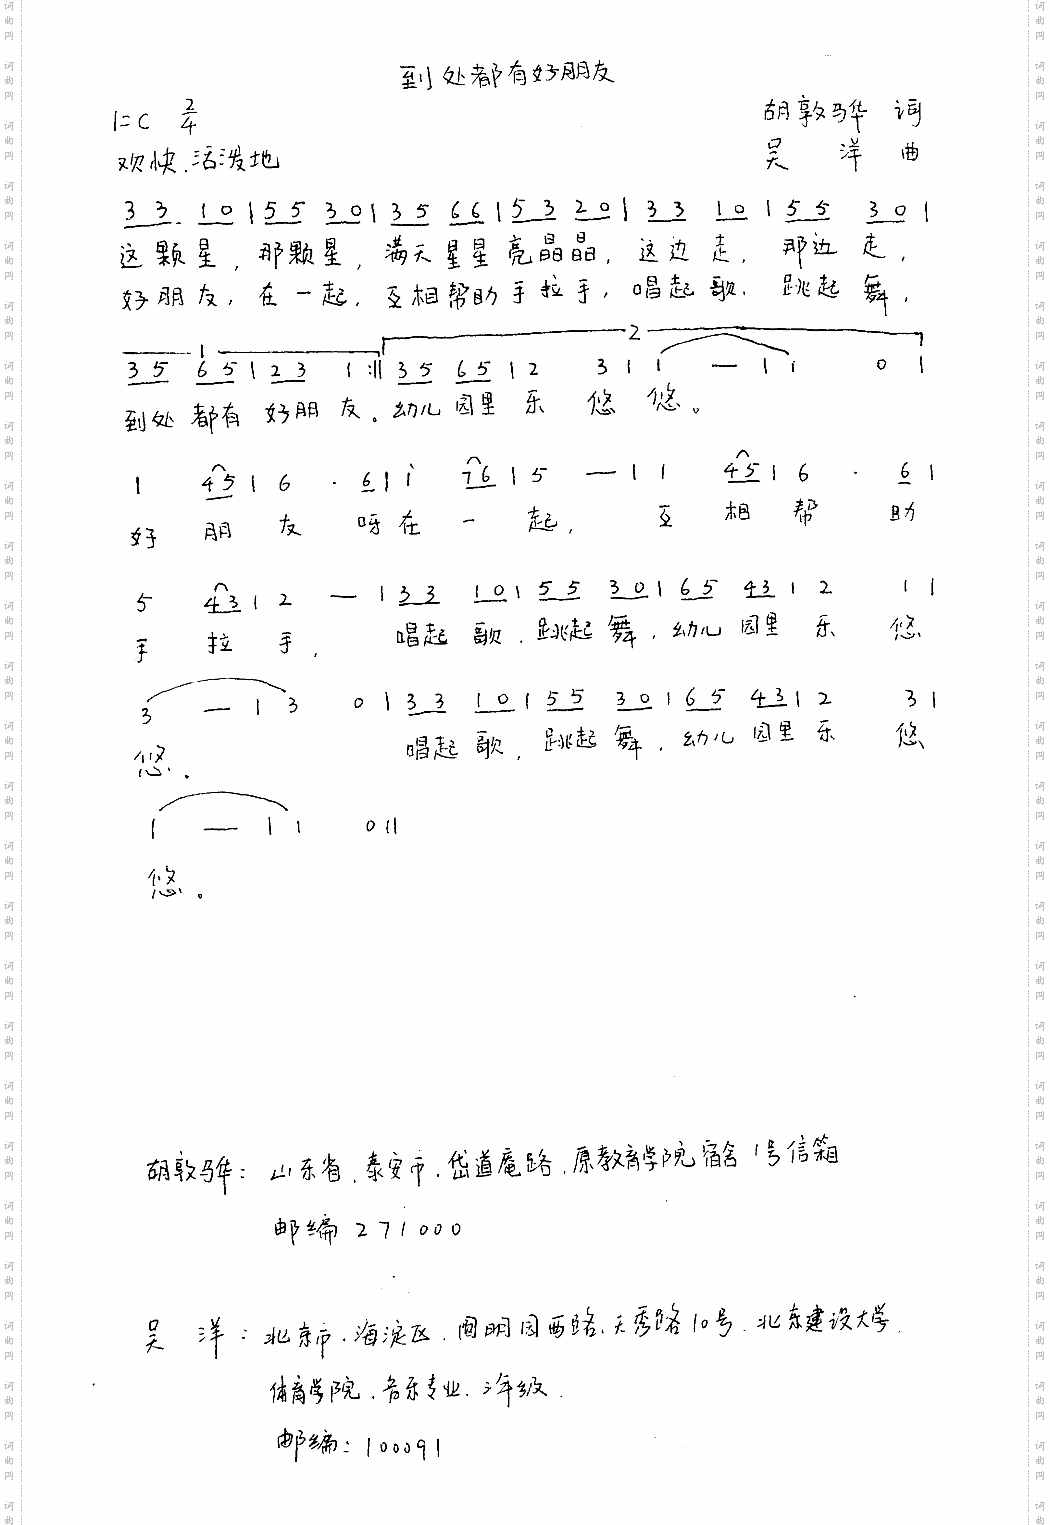 到处都有好朋友
1=C 2/4
胡敦骅 词
欢快、活泼地
吴 洋 曲
3 3. 1 0 | 5 5 3 0 | 3 5 6 6 | 5 3 2 0 | 3 3 1 0 | 5 5 3 0 |
这颗星，那颗星，满天星星亮晶晶，这边走，那边走，
好朋友，在一起，互相帮助手拉手，唱起歌，跳起舞，
1 2
3 5 6 5 | 2 3 1 :|| 3 5 6 5 | 2 3 | i — | i 0 |
到处都有好朋友。幼儿园里乐悠悠。
1 4 5 | 6 · 6 | i 7 6 | 5 — | 1 4 5 | 6 · 6 |
好朋友呀在一起，互相帮助
5 4 3 | 2 — | 3 3 1 0 | 5 5 3 0 | 6 5 4 3 | 2 1 |
手拉手，唱起歌，跳起舞，幼儿园里乐悠
3 — | 3 0 | 3 3 1 0 | 5 5 3 0 | 6 5 4 3 | 2 3 |
悠。唱起歌，跳起舞，幼儿园里乐悠
1 — | 1 0 ||
悠。
胡敦骅：山东省、泰安市、岱道庵路、原教育学院宿舍1号信箱
邮编 271000
吴 洋：北京市、海淀区、圆明园西路、天秀路10号、北京建设大学
体育学院、音乐专业、三年级、
邮编：100091
词曲网